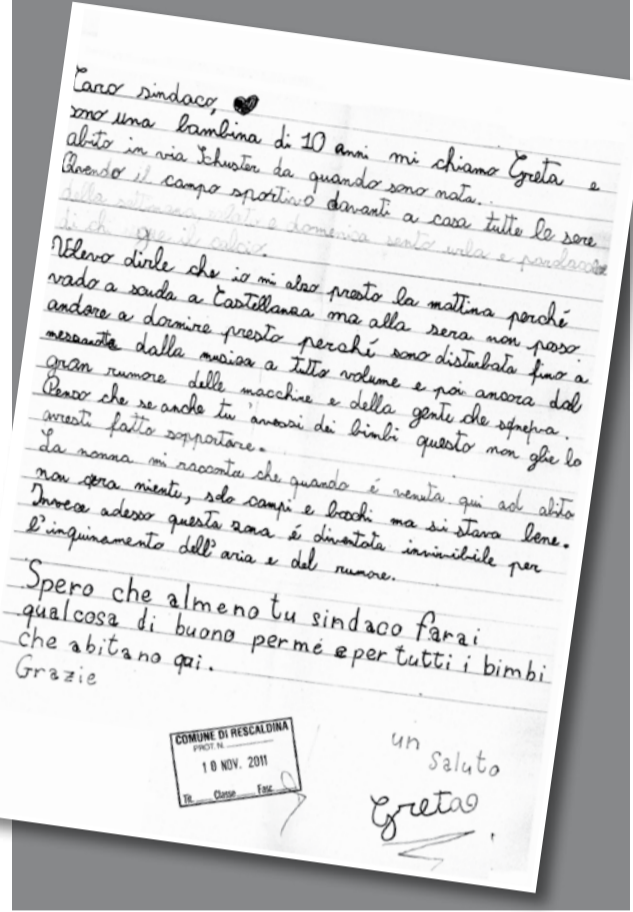 Caro sindaco,
sono una bambina di 10 anni mi chiamo Greta e
abito in via Schuster da quando sono nata.
Avendo il campo sportivo davanti a casa tutte le sere
della settimana sabati e domenica sento urla e parolacce
di chi segue il calcio.
Volevo dirle che io mi alzo presto la mattina perché
vado a scuola a Castellanza ma alla sera non posso
andare a dormire presto perché sono disturbata fino a
mezzanotte dalla musica a tutto volume e poi ancora dal
gran rumore delle macchine e della gente che
Penso che se anche tu avessi dei bimbi questo non glie lo
avresti fatto sopportare.
La nonna mi racconta che quando é venuta qui ad abita
non cera niente, solo campi e boschi ma si stava bene.
Invece adesso questa zona é diventata invivibile per
l'inquinamento dell'aria e del rumore.
Spero che almeno tu sindaco farai
qualcosa di buono permé e per tutti i bimbi
che abitano qui.
Grazie
COMUNE DI RESCALDINA
PROT. N.
10 NOV. 2011
Tit. Classe Fasc.
un
saluto
Greta